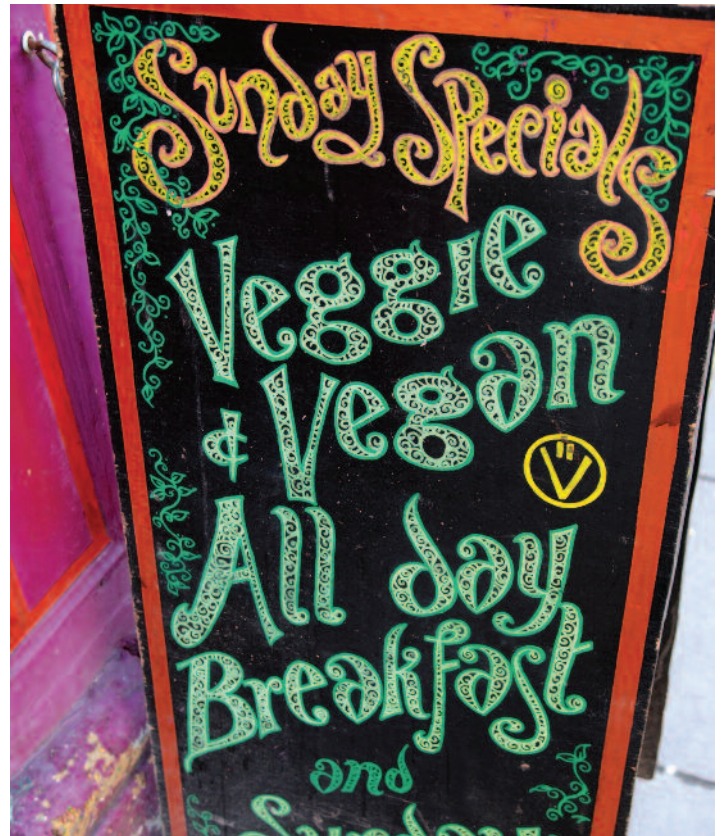 Sunday Specials
Veggie
& Vegan
V̈
All day
Breakfast
and
Sunday